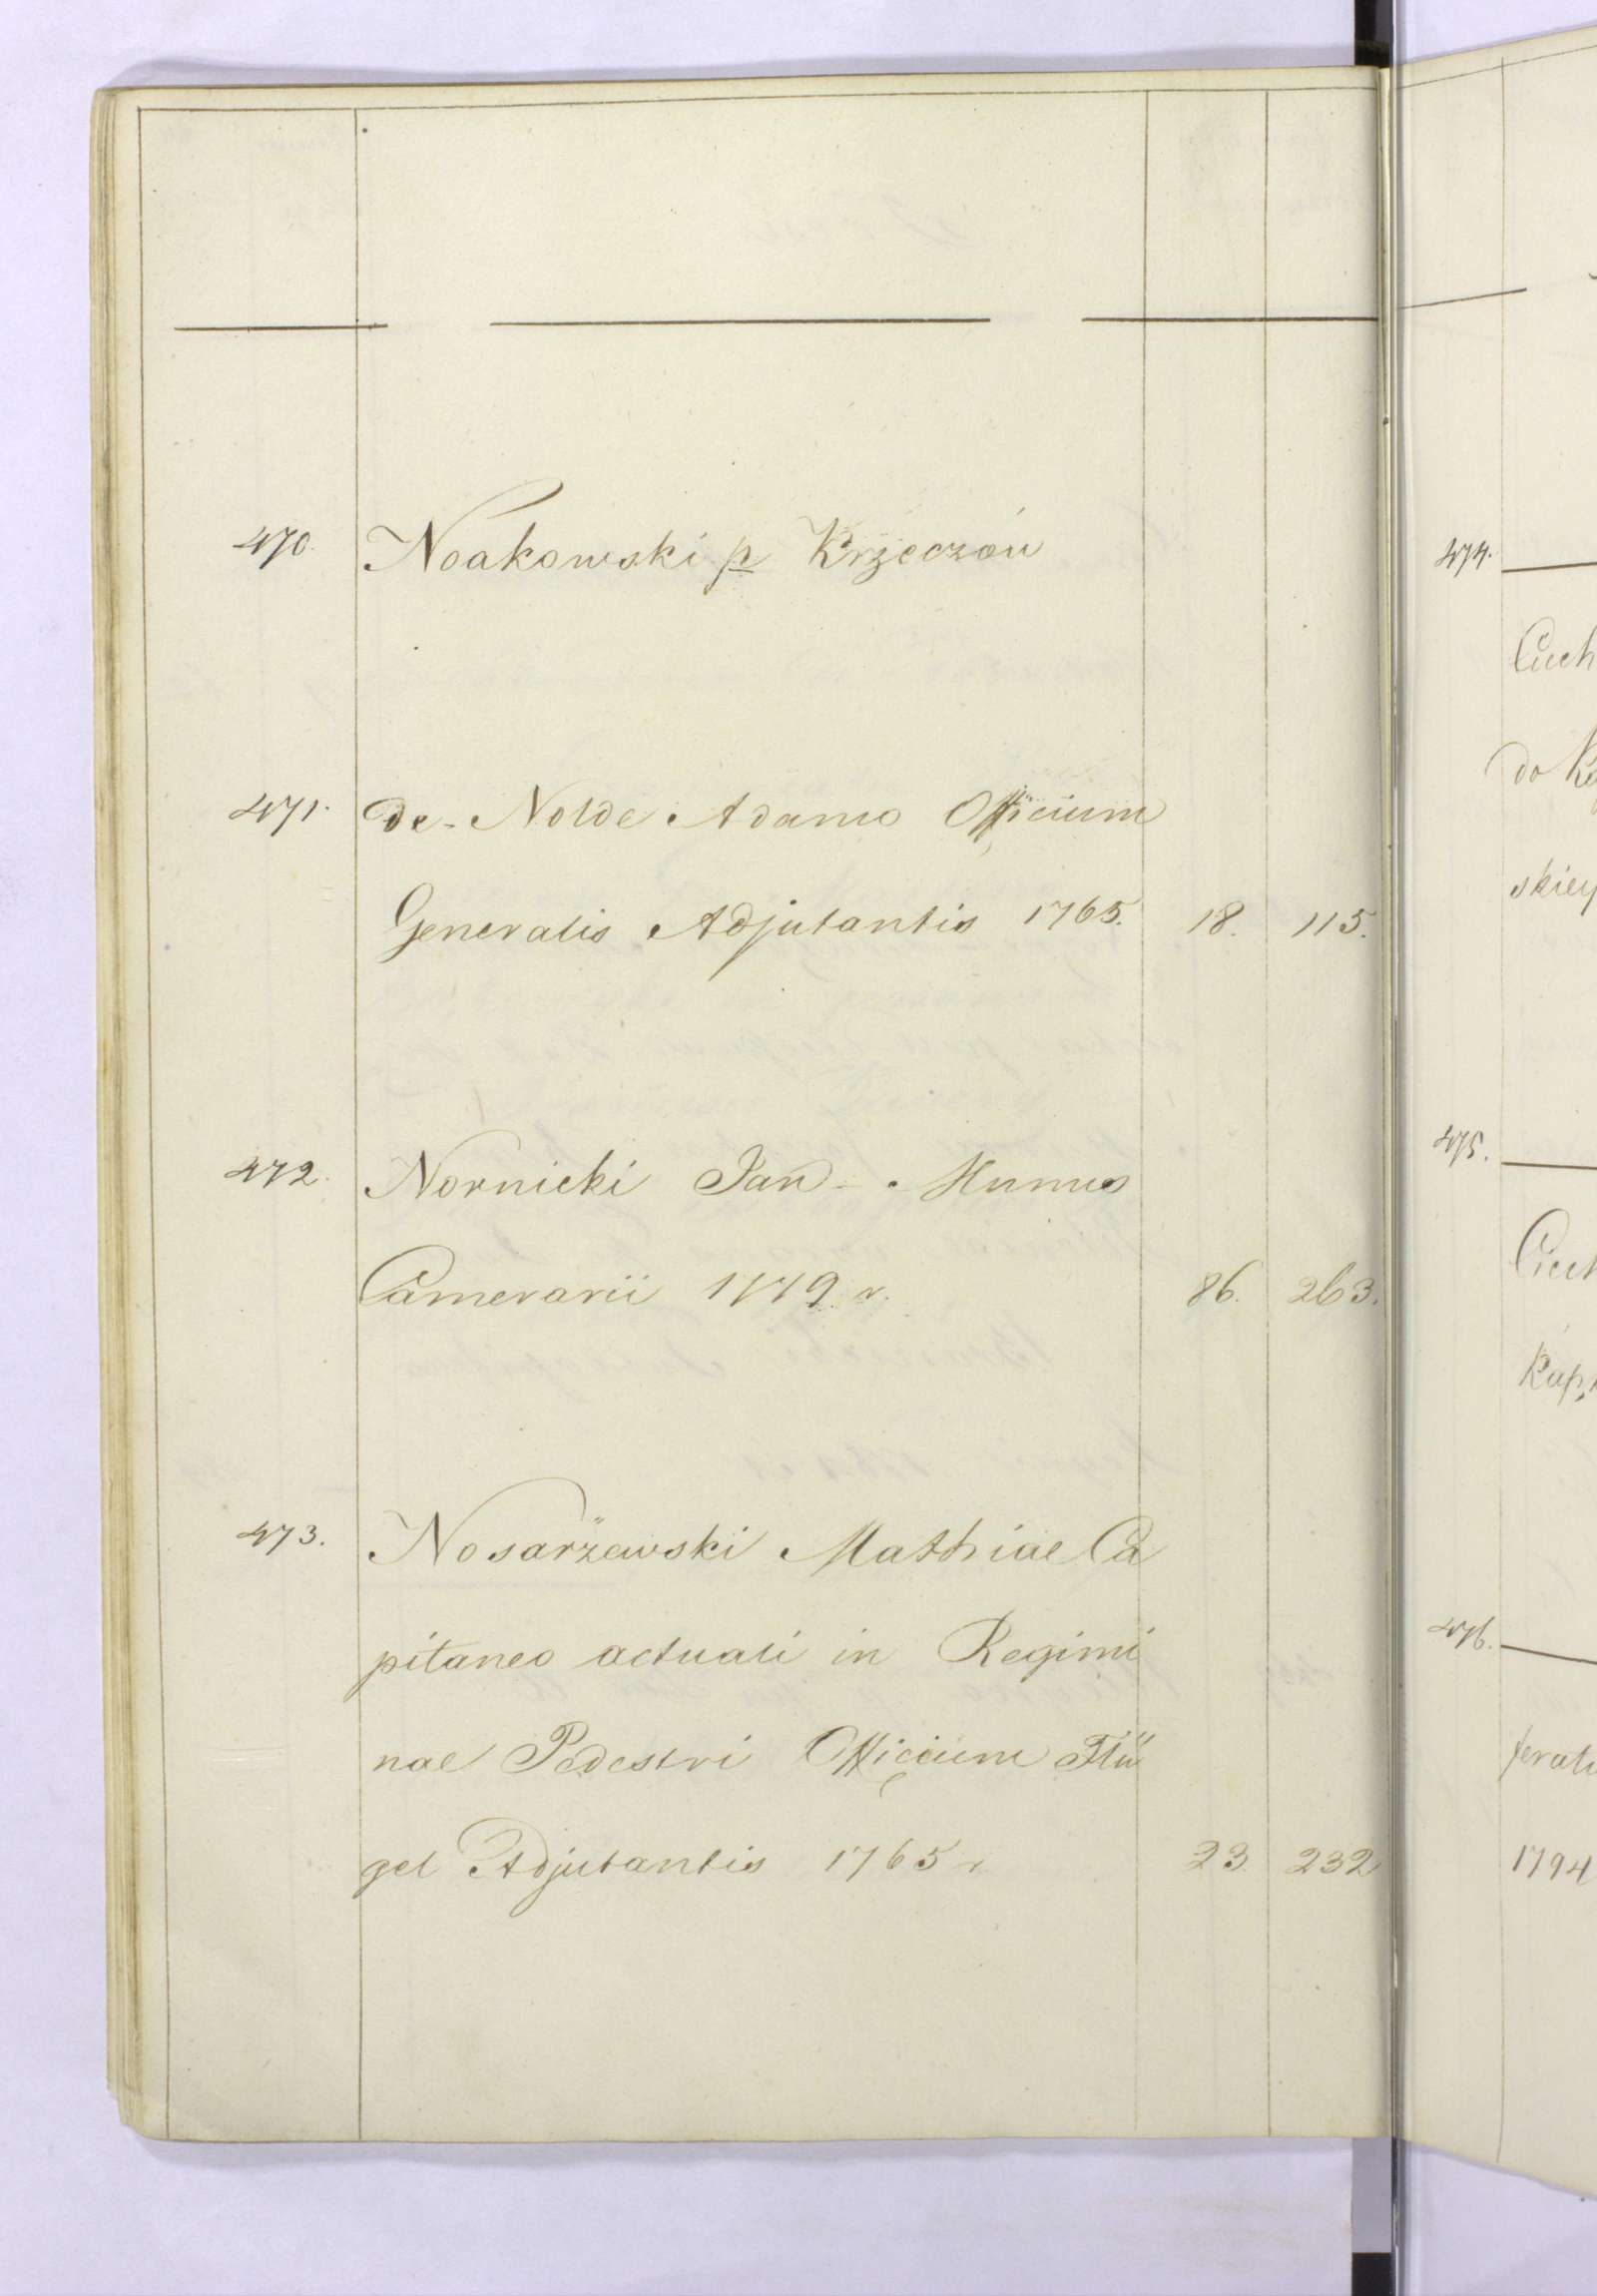 470. Noakowski p Krzeczów
471. de Nolde Adamo Officium
Generalis Adjutantis 1765. 18. 115.
472. Nornicki Jan - Munus
Camerarii 1779 r. 86. 263.
473. Nosarzewski Mathiae Ca
pitaneo actuali in Regimi
nae Pedestri Officium Flü
gel Adjutantis 1765 r 23. 232
474.
Ciech
do
skiey
475.
Ciech
Kap.
476.
ferato
1794